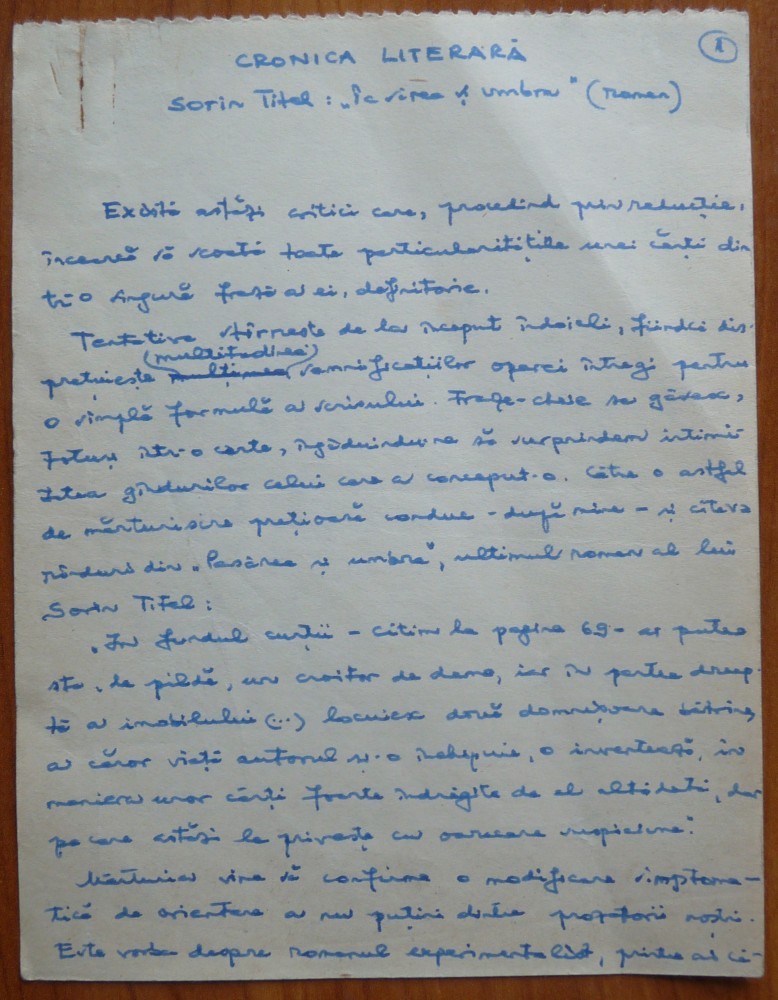 1
CRONICA LITERARĂ
Sorin Titel: „ și umbra" (roman)
Există astăzi critici care, procedînd prin reducție,
încearcă să scoată toate particularitățile unei cărți din-
tr-o singură frază a ei, definitorie.
Tentativa stîrnește de la început îndoieli, fiindcă dis-
(multitudinea)
prețuiește mulțimea semnificațiilor operei întregi pentru
o simplă formulă a scrisului. Fraze-cheie se găsesc,
totuși într-o carte, îngăduindu-ne să surprindem intimi-
tatea gîndurilor celui care a conceput-o. Către o astfel
de mărturisire prețioasă conduc - după mine - și cîteva
rînduri din „Pasărea și umbra", ultimul roman al lui
Sorin Titel:
„În fundul curții - citim la pagina 69 - ar putea
sta, de pildă, un croitor de dame, iar în partea dreap-
tă a imobilului (...) locuiesc două domnișoare bătrîne,
a căror viață autorul și-o închipuie, o inventează, în
maniera unor cărți foarte îndrăgite de el altădată, dar
pe care astăzi le privește cu oarecare suspiciune."
Mărturia vine să confirme o modificare simptoma-
tică de orientare a nu puțini dintre prozatorii noștri.
Este vorba despre romanul experimentalist, printre ai că-